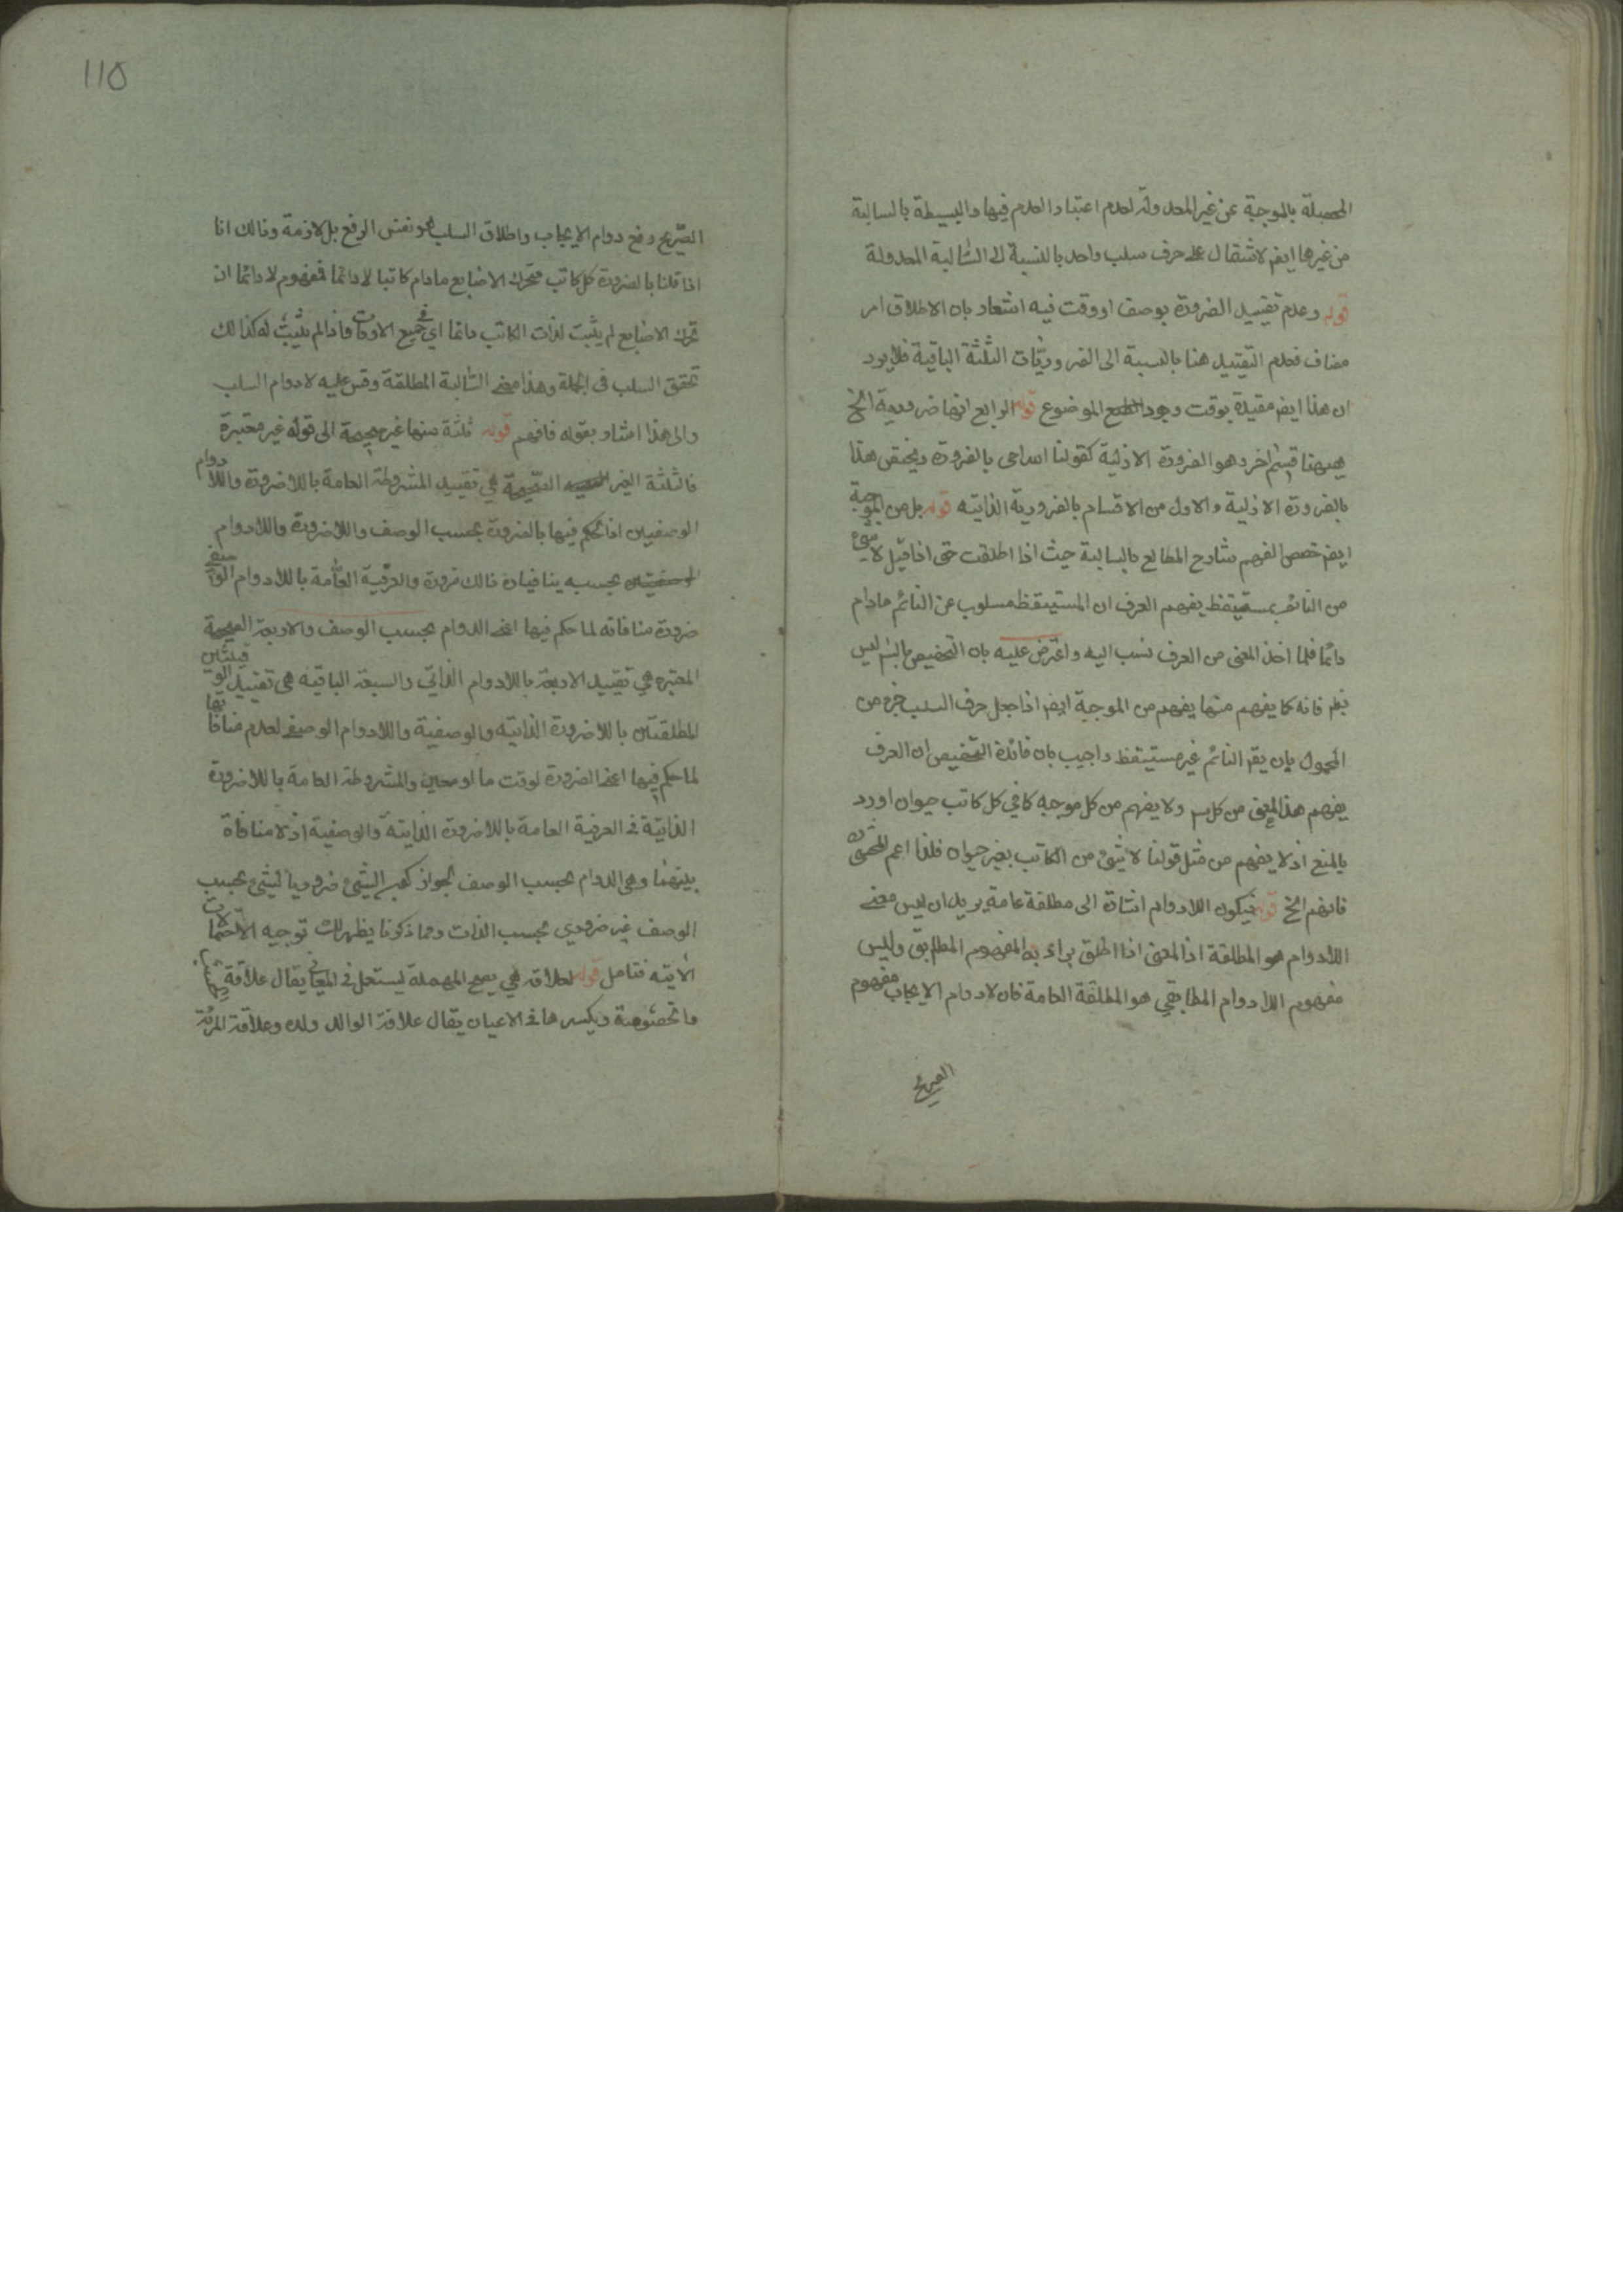 المحصلة بالموجبة عن غير المعدولة لعدم اعتبار العدم فيها والبسيطة بالسالبة
من غيرها ايضا لاشتمال على حرف سلب واحد بالنسبة الى السالبة المعدولة
قوله وعدم تقييد الضرورة بوصف او وقت فيه اشعار بان الاطلاق امر
مضاف فعدم التقييد هنا بالنسبة الى الضروريات الثلثة الباقية فلا يرد
ان هذا ايضا مقيدة بوقت وجود الموضوع قوله الرابع انها ضرورية الخ
ههنا قسم اخر وهو الضرورة الازلية كقولنا الله حي بالضرورة ويختص هذا
بالضرورة الازلية والاول من الاقسام بالضرورية الذاتيه قوله بل من الموجبة
ايضا خصص الفهم شارح المطالع بالسالبة حيث اذا اطلقت حتى اذا قيل لا شئ
من النائم بمستيقظ يفهم العرف ان المستيقظ مسلوب عن النائم مادام
نائما فلما اخذ المعنى من العرف نسب اليه واعترض عليه بان التخصيص بالسلب ليس
فانه كما يفهم منها يفهم من الموجبة ايضا اذا جعل حرف السلب جزء من
المحمول بان يقال النائم غير مستيقظ واجيب بان فائدة التخصيص ان العرف
يفهم هذا المعنى من كل سلب ولا يفهم من كل موجبه كما في كل كاتب حيوان اورد
بالمنع اذ لا يفهم من مثل قولنا لا شئ من الكاتب بغير حيوان فلذا اعم المحشى
فافهم الخ قوله فيكون اللادوام اشارة الى مطلقة عامة يريد ان ليس معنى
اللادوام هو المطلقة اذ المعنى اذا اطلق يراد به المفهوم المطابقى وليس
مفهوم اللادوام المطابقي هو المطلقة العامة فان لادوام الايجاب مفهوم
الصريح
110
الصريح رفع دوام الايجاب واطلاق السلب هو نفس الرفع بل لازمة وذالك انا
اذا قلنا بالضرورة كل كاتب متحرك الاصابع مادام كاتبا لا دائما فمفهوم لادائما ان
تحرك الاصابع لم يثبت لذات الكاتب دائما اي في جميع الاوقات واذا لم يثبت له كذالك
تحقق السلب في الجملة وهذا معنى السالبة المطلقة وقس عليه لادوام السلب
والى هذا اشار بقوله فافهم قوله ثلثة منها غير صحيحة الى قوله غير معتبرة
فالثلثة الغير الصحيحة هي تقييد المشروطة العامة باللاضرورة واللادوام
الوصفيين اذ الحكم فيها بالضرورة بحسب الوصف واللاضرورة واللادوام
بحسبه ينافيان ذالك ضرورة والعرفية العامة باللادوام الوصفى
ضرورة منافاته لما حكم فيها اعنى الدوام بحسب الوصف والاربعة الصحيحة
المعتبره هي تقييد الاربعة باللادوام الذاتي والسبعة الباقيه هى تقييد الوقتيتين
المطلقتين باللاضرورة الذاتيه والوصفية واللادوام الوصفى لعدم منافاتها
لما حكم فيها اعنى الضرورة لوقت ما او معين والمشروطة العامة باللاضرورة
الذاتيّة والعرفية العامة باللاضرورة الذاتية والوصفية اذ لا منافاة
بينهما وهي الدوام بحسب الوصف لجواز كون الشئ ضروريا لشئ بحسب
الوصف غير ضروري بحسب الذات ومما ذكرنا يظهر لك توجيه الاحتمالات
الاتيه فتامل قوله لعلاقه هي بفتح المهملة يستعمل في المعانى يقال علاقة
والخصومة وبكسرها في الاعيان يقال علاقة الوالد ولده وعلاقة المرئة